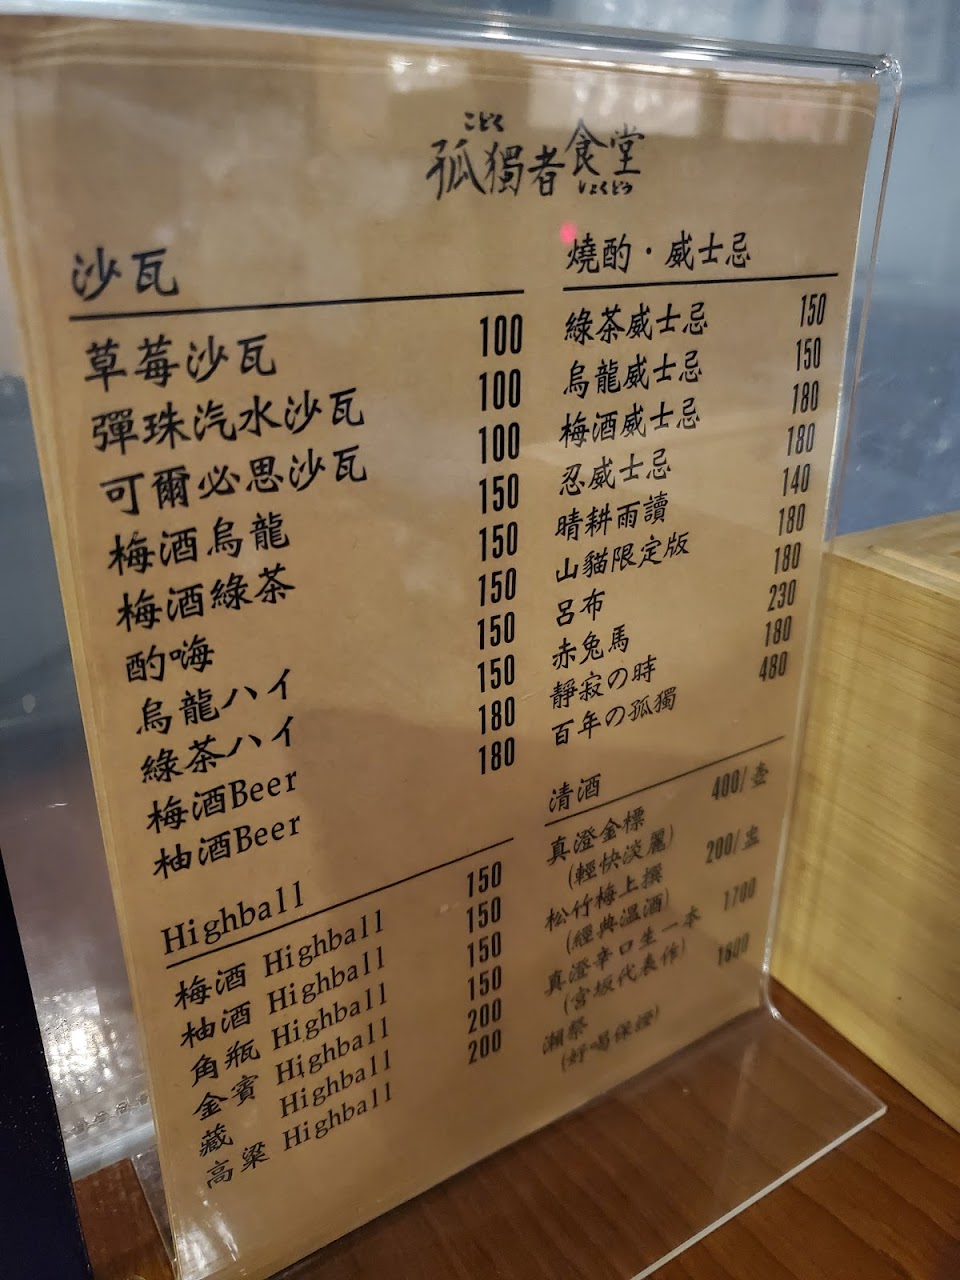 こどく
孤獨者食堂
しょくどう
沙瓦
草莓沙瓦 100
彈珠汽水沙瓦 100
可爾必思沙瓦 100
梅酒烏龍 150
梅酒綠茶 150
酌嗨 150
烏龍ハイ 150
綠茶ハイ 150
梅酒Beer 180
柚酒Beer 180
Highball
梅酒 Highball 150
柚酒 Highball 150
角瓶 Highball 150
金賓 Highball 150
藏 Highball 200
高粱 Highball 200
燒酌・威士忌
綠茶威士忌 150
烏龍威士忌 150
梅酒威士忌 180
忍威士忌 180
晴耕雨讀 140
山貓限定版 180
呂布 180
赤兔馬 230
靜寂の時 180
百年の孤獨 480
清酒
真澄金標 400/壺
(輕快淡麗)
松竹梅上撰 200/盅
(經典溫酒)
真澄辛口生一本 1700
(宮坂代表作)
瀨祭 1600
(好喝保證)